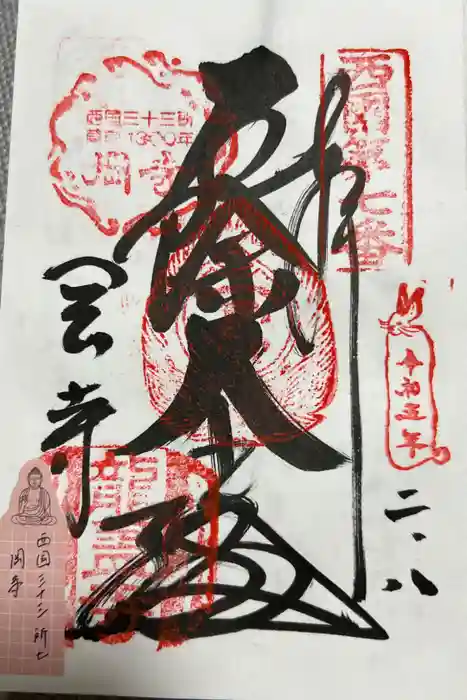 西國第七番
奉拝
令和五年
二、八
西国三十三所
草創1300年
岡寺
岡寺
龍蓋寺
西国三十三所七
岡寺